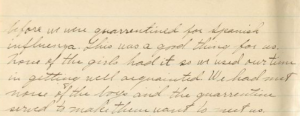 before we were quarrentined for Spanish
influenza. This was a good thing for us.
None of the girls had it so we used our time
in getting well acquainted. We had met
none of the boys and the quarrentine
served to make them want to meet us.